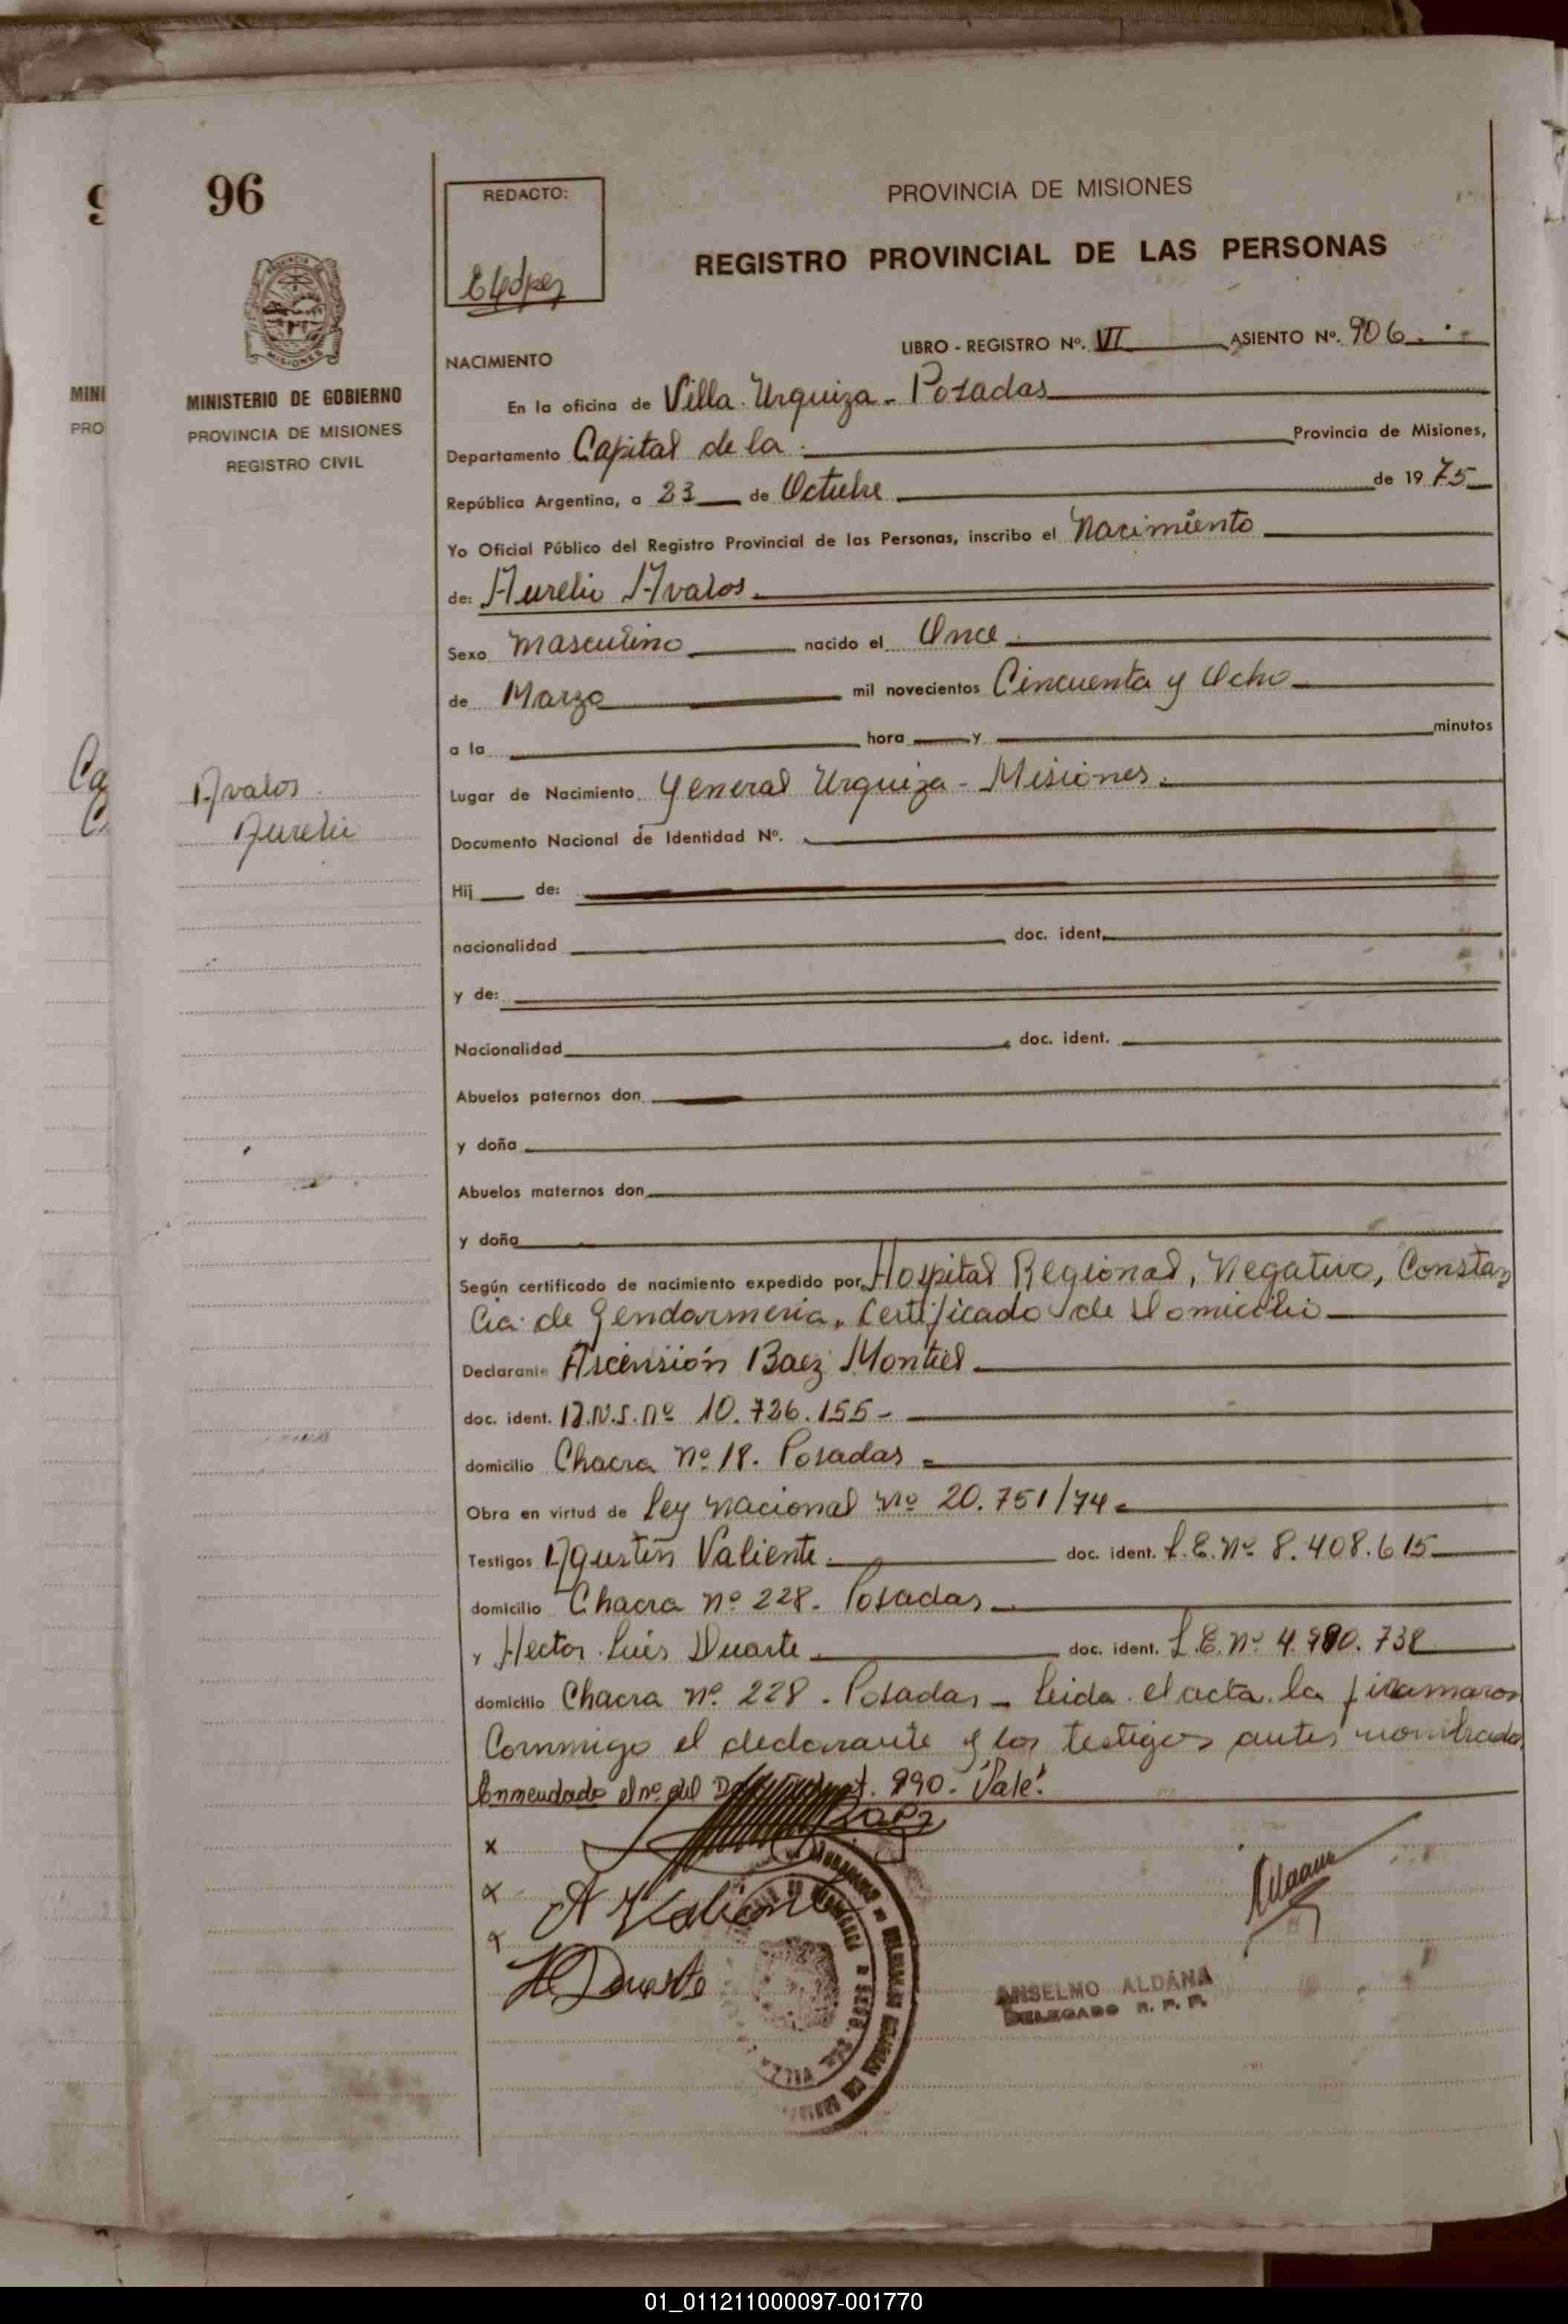 96
MINISTERIO DE GOBIERNO
PROVINCIA DE MISIONES
REGISTRO CIVIL
MINI
PRO
Avalos
Aurelio
REDACTO:
PROVINCIA DE MISIONES
REGISTRO PROVINCIAL DE LAS PERSONAS
LIBRO - REGISTRO Nº. VI ASIENTO Nº. 906
NACIMIENTO
En la oficina de Villa Urquiza - Posadas
Departamento Capital de la Provincia de Misiones,
República Argentina, a 23 de Octubre de 1975
Yo Oficial Público del Registro Provincial de las Personas, inscribo el Nacimiento
de: Aurelio Avalos
Sexo masculino nacido el Once
de Marzo mil novecientos Cincuenta y Ocho
a la hora y minutos
Lugar de Nacimiento General Urquiza - Misiones
Documento Nacional de Identidad Nº.
Hij de:
nacionalidad doc. ident.
y de:
Nacionalidad doc. ident.
Abuelos paternos don
y doña
Abuelos maternos don
y doña
Según certificado de nacimiento expedido por Hospital Regional, Negativo, Constan
cia de Gendarmeria, Certificado de Domicilio
Declarante Ascensión Baez Montiel
doc. ident. nº 10.726.155-
domicilio Chacra nº 18. Posadas
Obra en virtud de Ley nacional nº 20.751/74
Testigos Agustín Valiente doc. ident. L.E. nº 8.408.615
domicilio Chacra nº 228. Posadas
y Hector Luis Duarte doc. ident. L.E. nº 4.990.738
domicilio Chacra nº 228 - Posadas - leida el acta la firmaron
conmigo el declarante y los testigos antes nombrados
Enmendado el nº del 990. Vale!
x
x A Valiente
x
H Duarte
ANSELMO ALDANA
DELEGADO R. P. P.
01_011211000097-001770